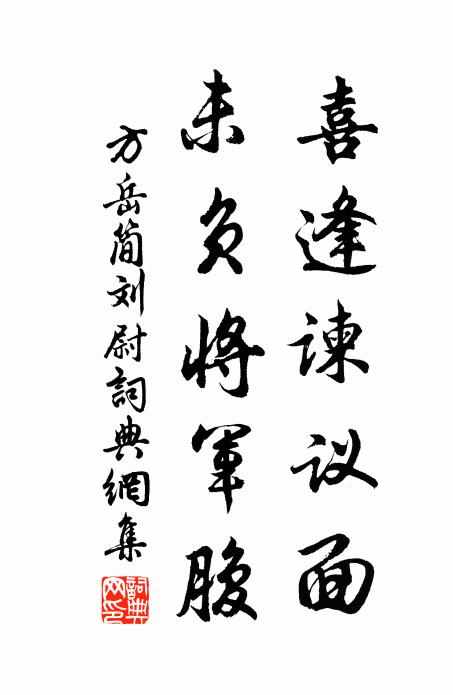 喜逢谏议面
未负将军腹
方岳简刘尉詞典網集
詞典網印